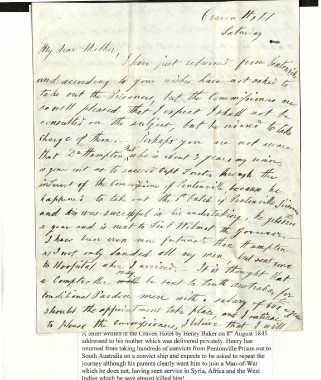 Craven Hotel
Saturday
My dear Mother,
I have just returned from Pentonville
and according to your wishes have not asked to
take out the Prisoners, but the Commissioners are
so well pleased that I expect I shall not be
consulted on the subject, but be ordered to take
charge of them. Perhaps you are not aware
that Dr Hampton RN who is about 3 years my senior
is gone out to succeed Capt Forster through the
interest of the Commissioners of Pentonville, because he
happened to take out the 1st batch of Pentonville Prisoners
and was successful in his undertaking. He gets
a year and is next to Sir E Wilmot the Governor
I have been even more fortunate than Hampton
as I not only landed all my men, but sent none
to Hospital when I arrived. It is thought that
a Comptroller may be sent to South Australia, for
Conditional Pardon men with a salary of 600£ a year
should the appointment take place, and I continue
to please the Commissioners I believe that I will
A letter written at the Craven Hotel by Henry Baker on 8th August 1845
addressed to his mother which was delivered privately. Henry has
returned from taking hundreds of convicts from Pentonville Prison out to
South Australia on a convict ship and expects to be asked to repeat the
journey although his parents clearly want him to join a Man-of-War
which he does not, having seen service in Syria, Africa and the West
Indies which he says almost killed him!